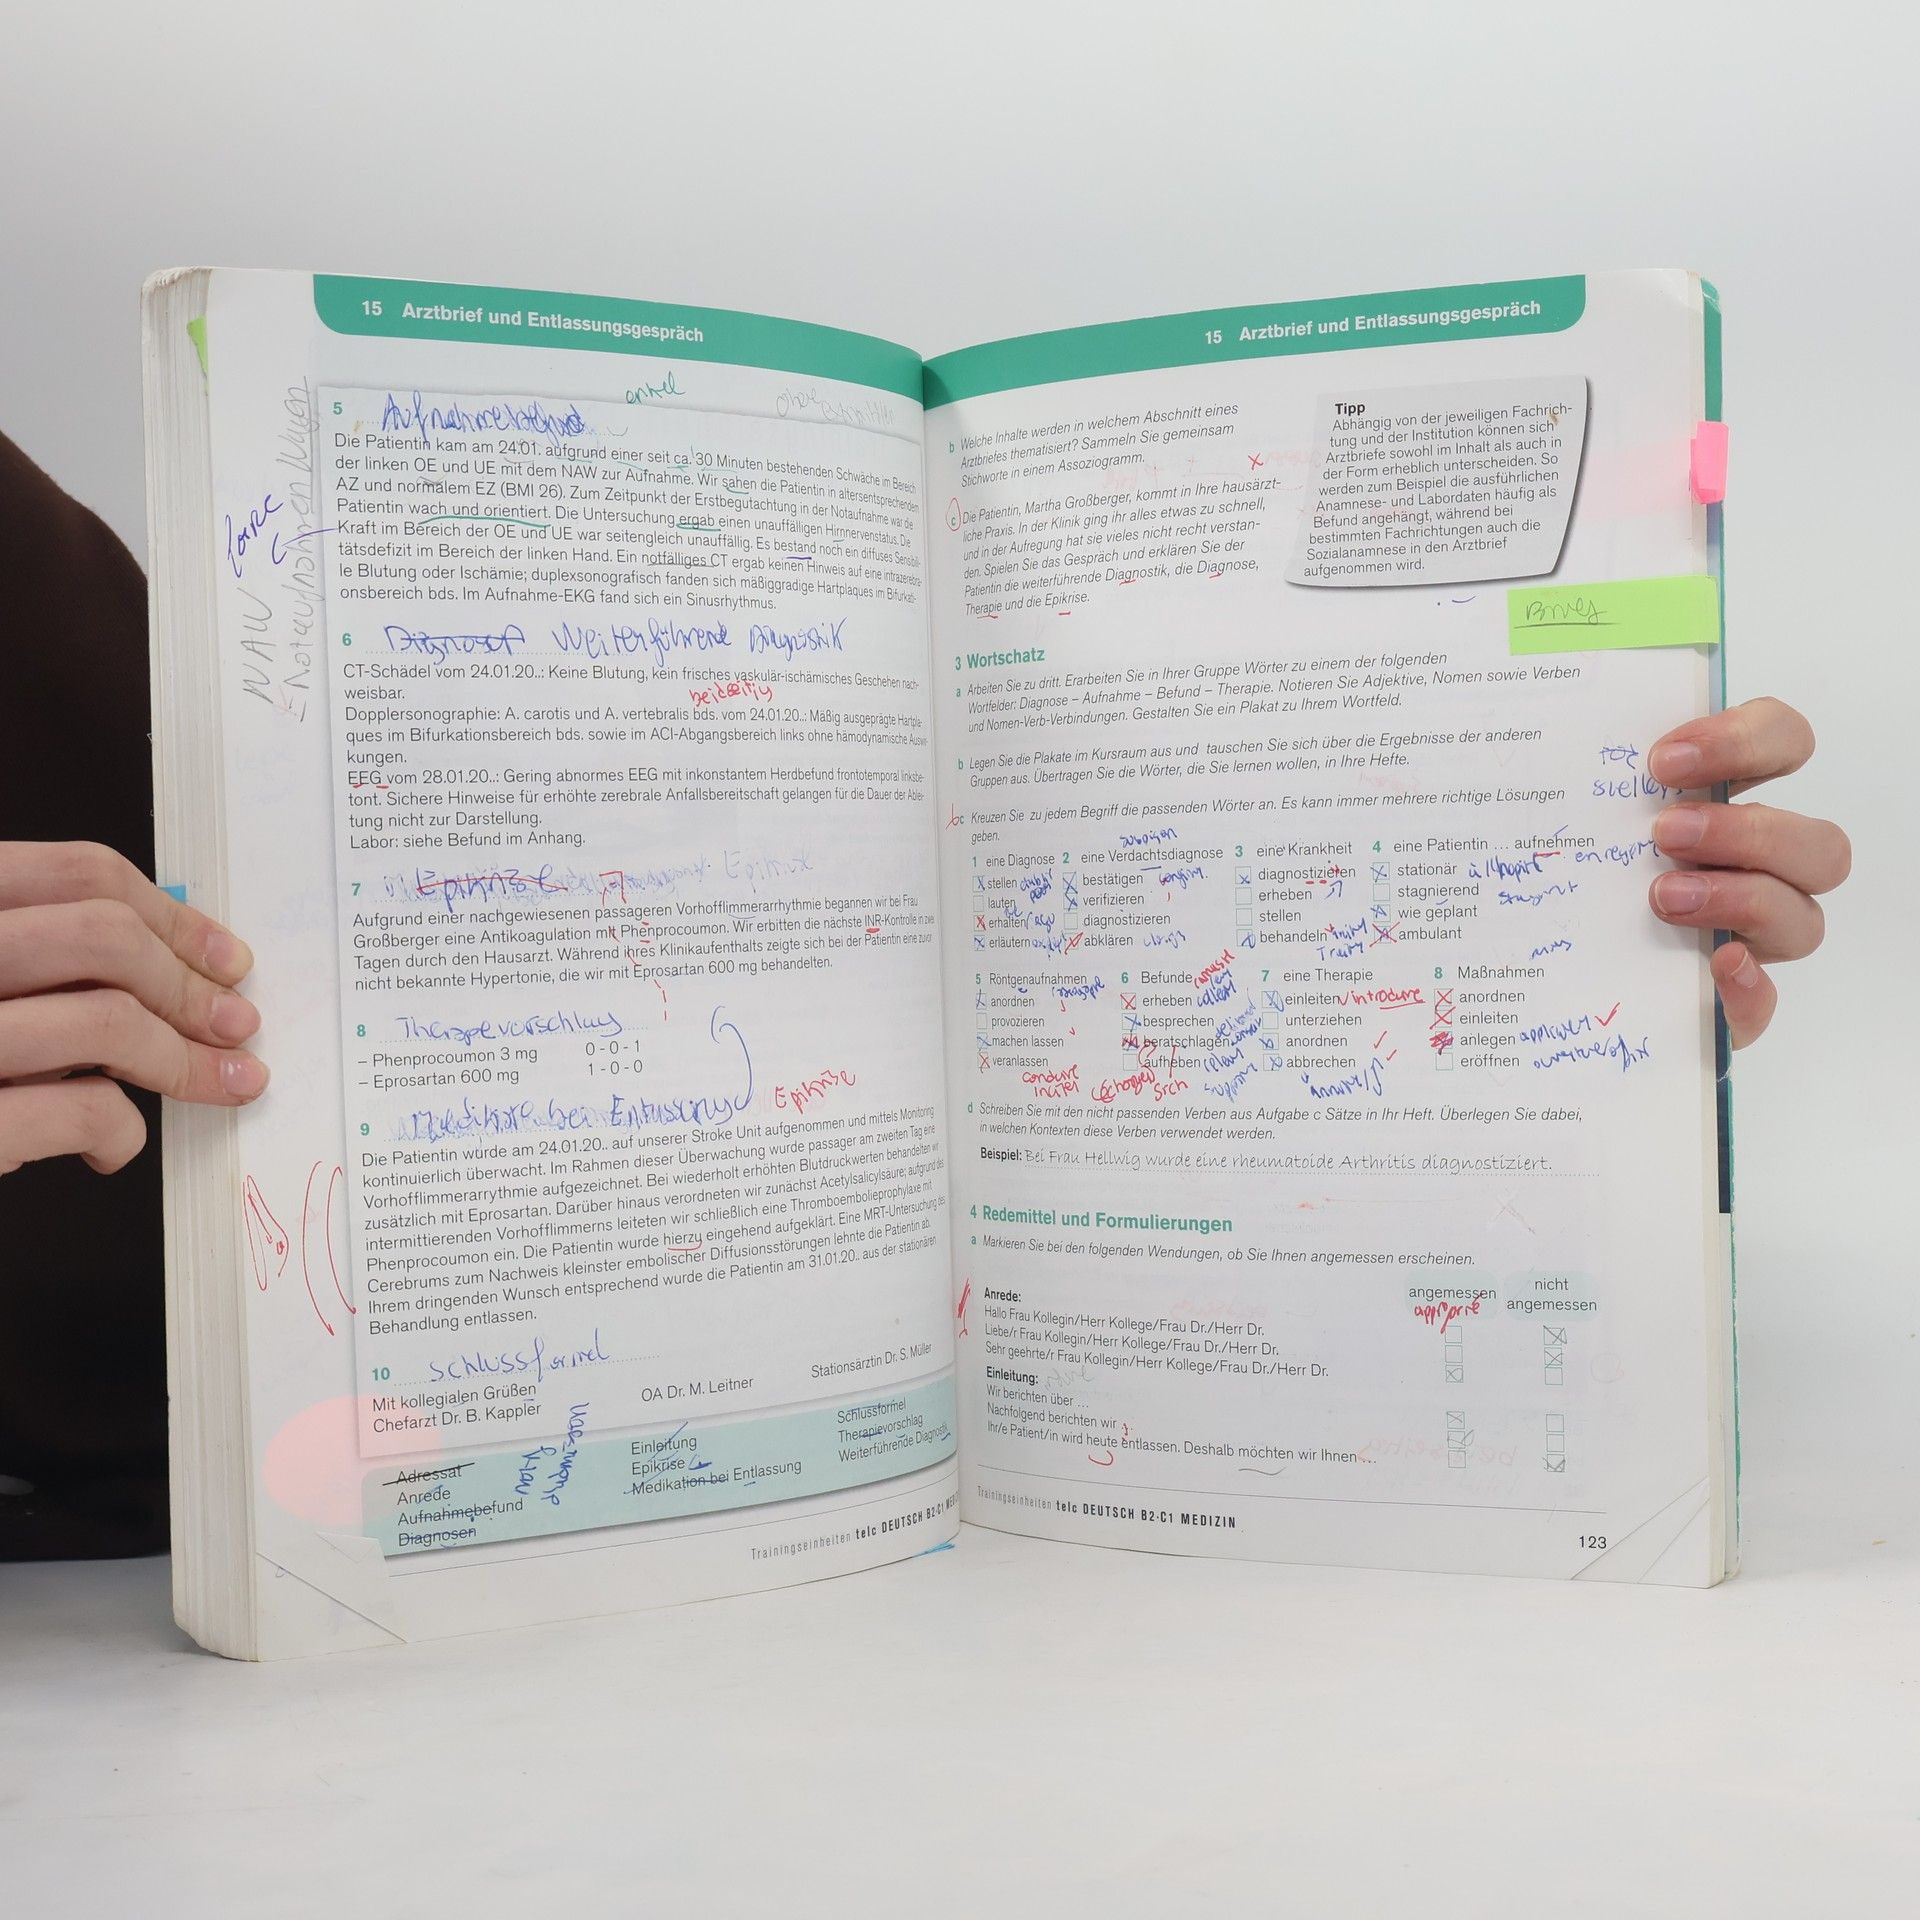 15 Arztbrief und Entlassungsgespräch
5 Aufnahmebefund
Die Patientin kam am 24.01. aufgrund einer seit ca. 30 Minuten bestehenden Schwäche im Bereich
der linken OE und UE mit dem NAW zur Aufnahme. Wir sahen die Patientin in altersentsprechendem
AZ und normalem EZ (BMI 26). Zum Zeitpunkt der Erstbegutachtung in der Notaufnahme war die
Patientin wach und orientiert. Die Untersuchung ergab einen unauffälligen Hirnnervenstatus. Die
Kraft im Bereich der OE und UE war seitengleich unauffällig. Es bestand noch ein diffuses Sensibili-
tätsdefizit im Bereich der linken Hand. Ein notfälliges CT ergab keinen Hinweis auf eine intrazerebra-
le Blutung oder Ischämie; duplexsonografisch fanden sich mäßiggradige Hartplaques im Bifurkati-
onsbereich bds. Im Aufnahme-EKG fand sich ein Sinusrhythmus.
NAW
Notaufnahmen Wagen
6 Weiterführende Diagnostik
CT-Schädel vom 24.01.20..: Keine Blutung, kein frisches vaskulär-ischämisches Geschehen nach-
weisbar.
beidseitig
Dopplersonographie: A. carotis und A. vertebralis bds. vom 24.01.20..: Mäßig ausgeprägte Hartpla-
ques im Bifurkationsbereich bds. sowie im ACI-Abgangsbereich links ohne hämodynamische Auswir-
kungen.
EEG vom 28.01.20..: Gering abnormes EEG mit inkonstantem Herdbefund frontotemporal linksbe-
tont. Sichere Hinweise für erhöhte zerebrale Anfallsbereitschaft gelangen für die Dauer der Ablei-
tung nicht zur Darstellung.
Labor: siehe Befund im Anhang.
7 Epikrise Epikrise
Aufgrund einer nachgewiesenen passageren Vorhofflimmerarrhythmie begannen wir bei Frau
Großberger eine Antikoagulation mit Phenprocoumon. Wir erbitten die nächste INR-Kontrolle in zwei
Tagen durch den Hausarzt. Während ihres Klinikaufenthalts zeigte sich bei der Patientin eine zuvor
nicht bekannte Hypertonie, die wir mit Eprosartan 600 mg behandelten.
8 Therapievorschlag
– Phenprocoumon 3 mg 0 - 0 - 1
– Eprosartan 600 mg 1 - 0 - 0
9 Medikation bei Entlassung Epikrise
Die Patientin wurde am 24.01.20.. auf unserer Stroke Unit aufgenommen und mittels Monitoring
kontinuierlich überwacht. Im Rahmen dieser Überwachung wurde passager am zweiten Tag eine
Vorhofflimmerarrythmie aufgezeichnet. Bei wiederholt erhöhten Blutdruckwerten behandelten wir
zusätzlich mit Eprosartan. Darüber hinaus verordneten wir zunächst Acetylsalicylsäure; aufgrund des
intermittierenden Vorhofflimmerns leiteten wir schließlich eine Thromboembolieprophylaxe mit
Phenprocoumon ein. Die Patientin wurde hierzu eingehend aufgeklärt. Eine MRT-Untersuchung des
Cerebrums zum Nachweis kleinster embolischer Diffusionsstörungen lehnte die Patientin ab.
Ihrem dringenden Wunsch entsprechend wurde die Patientin am 31.01.20.. aus der stationären
Behandlung entlassen.
10 Schlussformel
Mit kollegialen Grüßen
Chefarzt Dr. B. Kappler OA Dr. M. Leitner Stationsärztin Dr. S. Müller
Adressat
Anrede
Aufnahmebefund
Diagnosen
Einleitung
Epikrise
Medikation bei Entlassung
Schlussformel
Therapievorschlag
Weiterführende Diagnostik
Trainingseinheiten telc DEUTSCH B2·C1 MEDIZIN
15 Arztbrief und Entlassungsgespräch
b Welche Inhalte werden in welchem Abschnitt eines
Arztbriefes thematisiert? Sammeln Sie gemeinsam
Stichworte in einem Assoziogramm.
c Die Patientin, Martha Großberger, kommt in Ihre hausärzt-
liche Praxis. In der Klinik ging ihr alles etwas zu schnell,
und in der Aufregung hat sie vieles nicht recht verstan-
den. Spielen Sie das Gespräch und erklären Sie der
Patientin die weiterführende Diagnostik, die Diagnose,
Therapie und die Epikrise.
Tipp
Abhängig von der jeweiligen Fachrich-
tung und der Institution können sich
Arztbriefe sowohl im Inhalt als auch in
der Form erheblich unterscheiden. So
werden zum Beispiel die ausführlichen
Anamnese- und Labordaten häufig als
Befund angehängt, während bei
bestimmten Fachrichtungen auch die
Sozialanamnese in den Arztbrief
aufgenommen wird.
3 Wortschatz
a Arbeiten Sie zu dritt. Erarbeiten Sie in Ihrer Gruppe Wörter zu einem der folgenden
Wortfelder: Diagnose – Aufnahme – Befund – Therapie. Notieren Sie Adjektive, Nomen sowie Verben
und Nomen-Verb-Verbindungen. Gestalten Sie ein Plakat zu Ihrem Wortfeld.
b Legen Sie die Plakate im Kursraum aus und tauschen Sie sich über die Ergebnisse der anderen
Gruppen aus. Übertragen Sie die Wörter, die Sie lernen wollen, in Ihre Hefte.
c Kreuzen Sie zu jedem Begriff die passenden Wörter an. Es kann immer mehrere richtige Lösungen
geben.
1 eine Diagnose
stellen
lauten
erhalten
erläutern
2 eine Verdachtsdiagnose
bestätigen
verifizieren
diagnostizieren
abklären
3 eine Krankheit
diagnostizieren
erheben
stellen
behandeln
4 eine Patientin ... aufnehmen
stationär
stagnierend
wie geplant
ambulant
5 Röntgenaufnahmen
anordnen
provozieren
machen lassen
veranlassen
6 Befunde
erheben
besprechen
beratschlagen
aufheben
sich
7 eine Therapie
einleiten introduire
unterziehen
anordnen
abbrechen
8 Maßnahmen
anordnen
einleiten
anlegen
eröffnen
d Schreiben Sie mit den nicht passenden Verben aus Aufgabe c Sätze in Ihr Heft. Überlegen Sie dabei,
in welchen Kontexten diese Verben verwendet werden.
Beispiel: Bei Frau Hellwig wurde eine rheumatoide Arthritis diagnostiziert.
4 Redemittel und Formulierungen
a Markieren Sie bei den folgenden Wendungen, ob Sie Ihnen angemessen erscheinen.
angemessen nicht angemessen
Anrede:
Hallo Frau Kollegin/Herr Kollege/Frau Dr./Herr Dr.
Liebe/r Frau Kollegin/Herr Kollege/Frau Dr./Herr Dr.
Sehr geehrte/r Frau Kollegin/Herr Kollege/Frau Dr./Herr Dr.
Einleitung:
Wir berichten über ...
Nachfolgend berichten wir
Ihr/e Patient/in wird heute entlassen. Deshalb möchten wir Ihnen ...
Trainingseinheiten telc DEUTSCH B2·C1 MEDIZIN
123